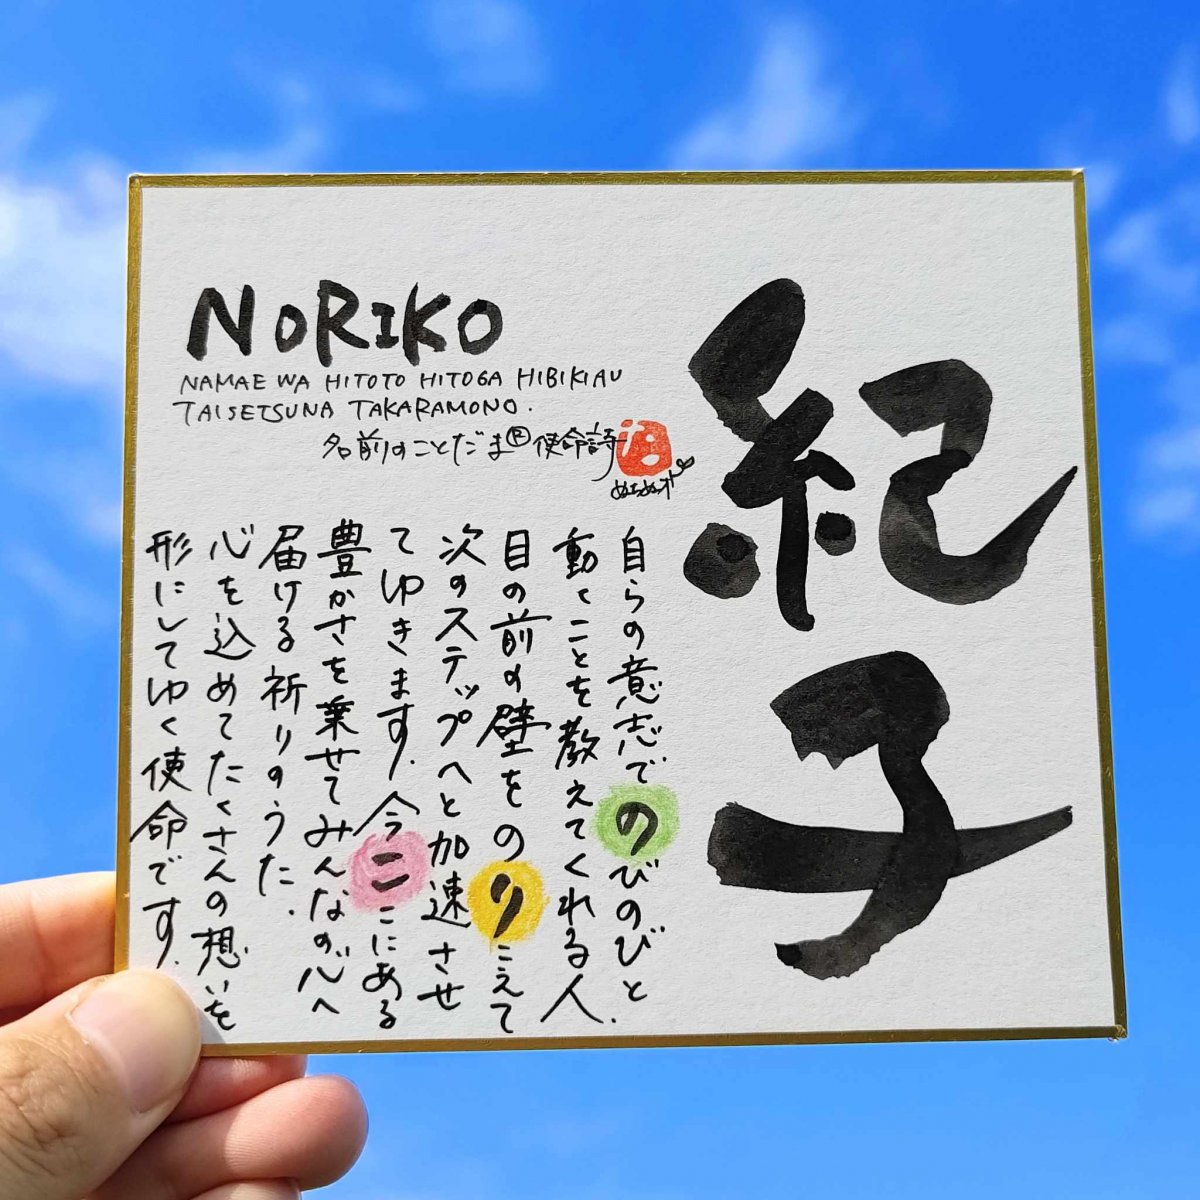 紀子
NORIKO
NAMAE WA HITOTO HITOGA HIBIKIAU
TAISETSUNA TAKARAMONO.
名前のことだま®使命詩
自らの意志でのびのびと
動くことを教えてくれる人.
目の前の壁をのりこえて
次のステップへと加速させ
てゆきます.今ここにある
豊かさを乗せてみんなの心へ
届ける祈りのうた.
心を込めてたくさんの想いを
形にしてゆく使命です.